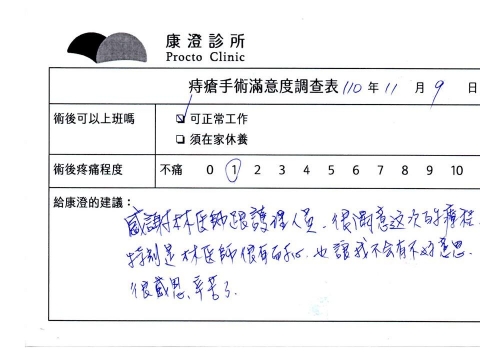 康澄診所
Procto Clinic
痔瘡手術滿意度調查表 110 年 11 月 9 日
術後可以上班嗎 ☑ 可正常工作
□ 須在家休養
術後疼痛程度 不痛 0 1 2 3 4 5 6 7 8 9 10
給康澄的建議：
感謝林医師跟護理人員、很滿意这次的療程.
特別是林医師很有耐心.也讓我不会有不好意思.
很感恩、辛苦了.